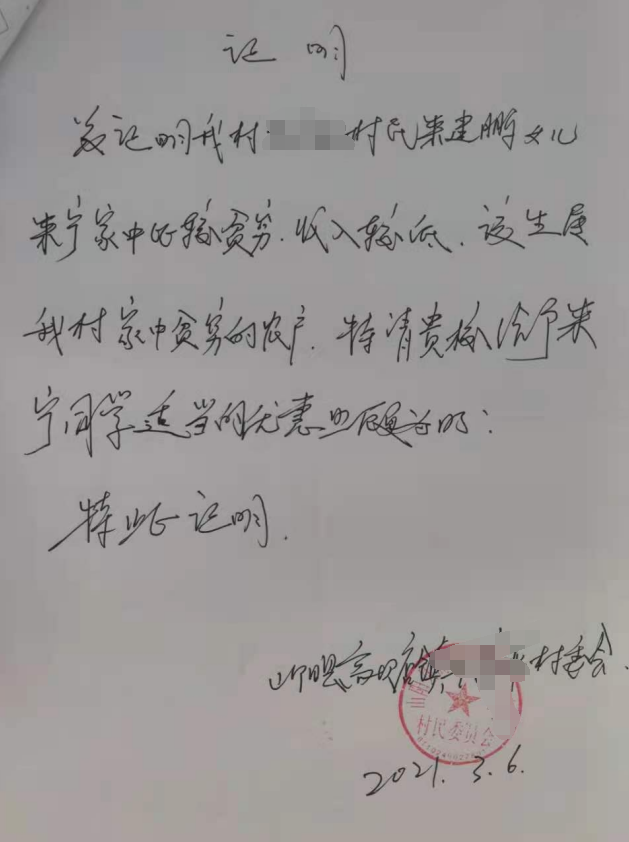 证 明
兹证明我村 村民朱建鹏女儿
朱宁家中比较贫穷.收入较低.该生属
我村家中贫穷的农户.特请贵校给予朱
宁同学适当的优惠照顾
特此证明.
山阳县高坝店镇 村委会.
村民委员会
2021.3.6.